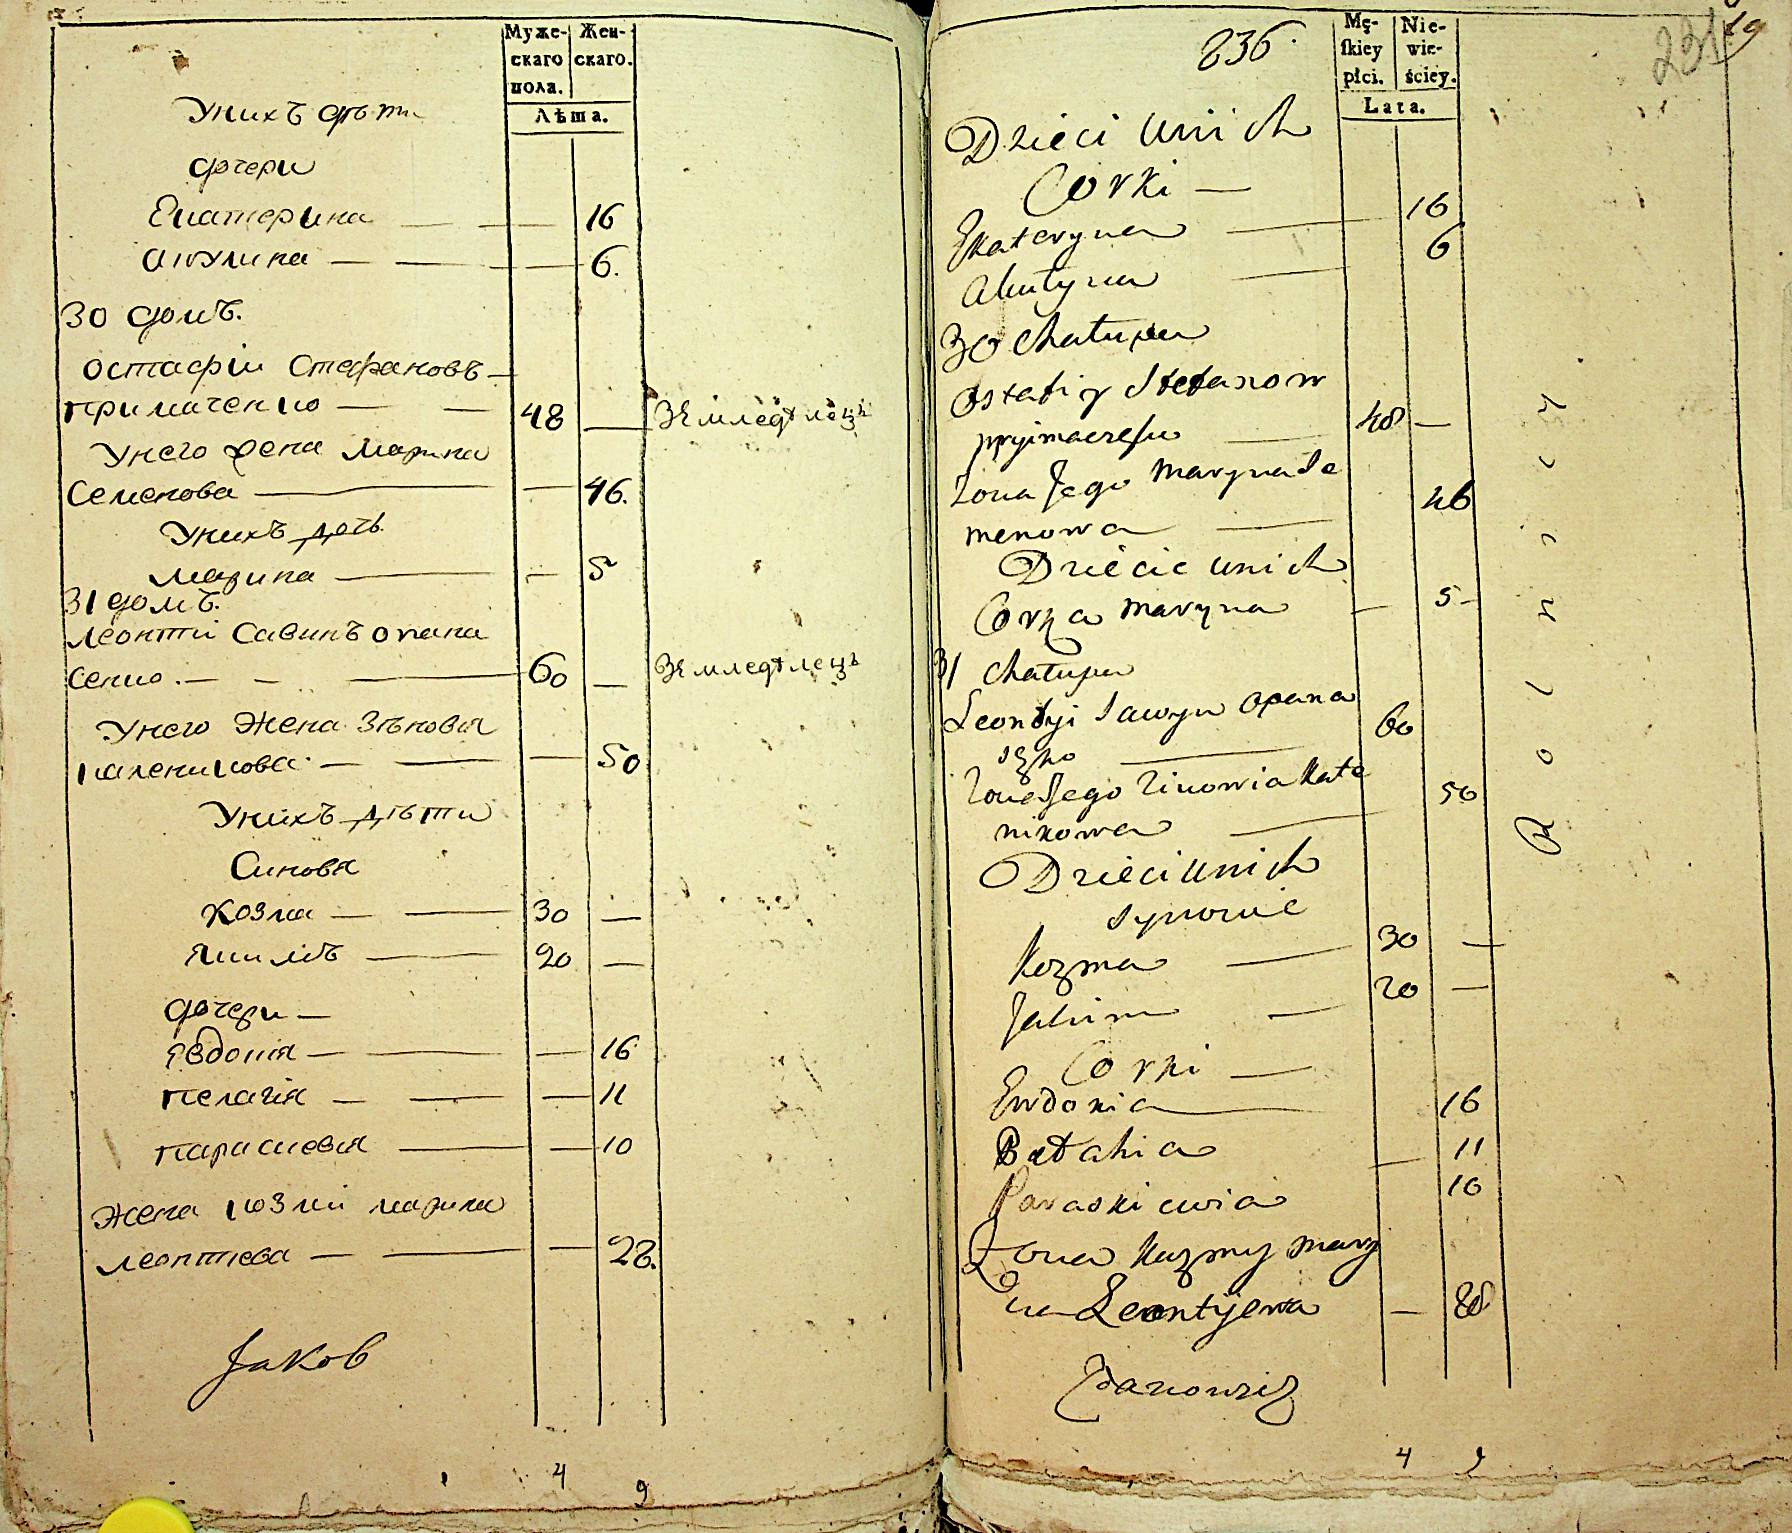 Муже-
скаго
пола.
Жен-
скаго.
Лѣта.
Унихъ дѣти
дочери
Екатерина — — 16
Акулина — — — 6.
30 домъ.
Остафіи Стефановъ —
примаченко — — 48 — Земледѣлецъ
Унего жена Марина
Семенова — — 46.
Унихъ дочь
Марина — — 5
31 домъ.
Леонтіи Савинъ опана
сенко. — — — 60 — Земледѣлецъ
Унего Жена Зѣновія
каленикова — — — 50
Унихъ дѣти
Синовя
Козма — — 30 —
Якимъ — 20 —
дочери —
Явдокія — — — 16
пелагія — — — 11
параскевія — — 10
Жена козми марина
леонтіева — — — 28.
Jaков
4
9
836.
231
19
Mę-
skiey
płci.
Nie-
wie-
ściey.
Lata.
Dzieci unich
Corki —
Ekateryna — 16
Akulyna — 6
30 Chatupa
Ostafiy Stefanow
pryimaczenko — 48 —
Zona Jego Maryna Se
menowa — 46
Dziecie unich
Corka Maryna — 5 -
31 Chatupa
Leontyi Sawyn Opana
sęko — 60
Zona Jego Zinowia Kale
nikowa — 50
Dzieci unich
Synowie
Kozma — 30 —
Jakim — 20 —
Corki —
Ewdokia — 16
Pelahia — 11
Paraskiewia 10
Zona Kozmy Mary
na Leontijewa — 28
Zdanowicz
4 9
Rolnicy